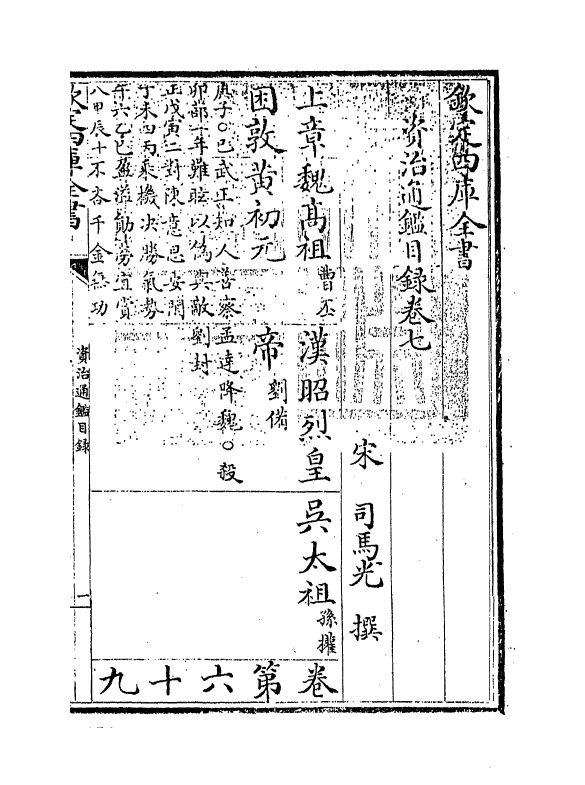 欽定四庫全書
資治通鑑目録卷七
宋 司馬光 撰
上章魏高祖曹丕
漢昭烈皇
吳太祖孫權
卷
困敦黃初元
帝劉備
第
庚子○巴武正知人善察
孟達降魏○殺
六
卯部一年難眩以偽與敵
劉封
正戊寅二對陳意思安閒
十
丁未四丙乘機决勝氣勢
午六乙巳盈溢勛勞宜賞
九
八甲辰十不吝千金無功
欽定四庫全書
資治通鑑目録
一